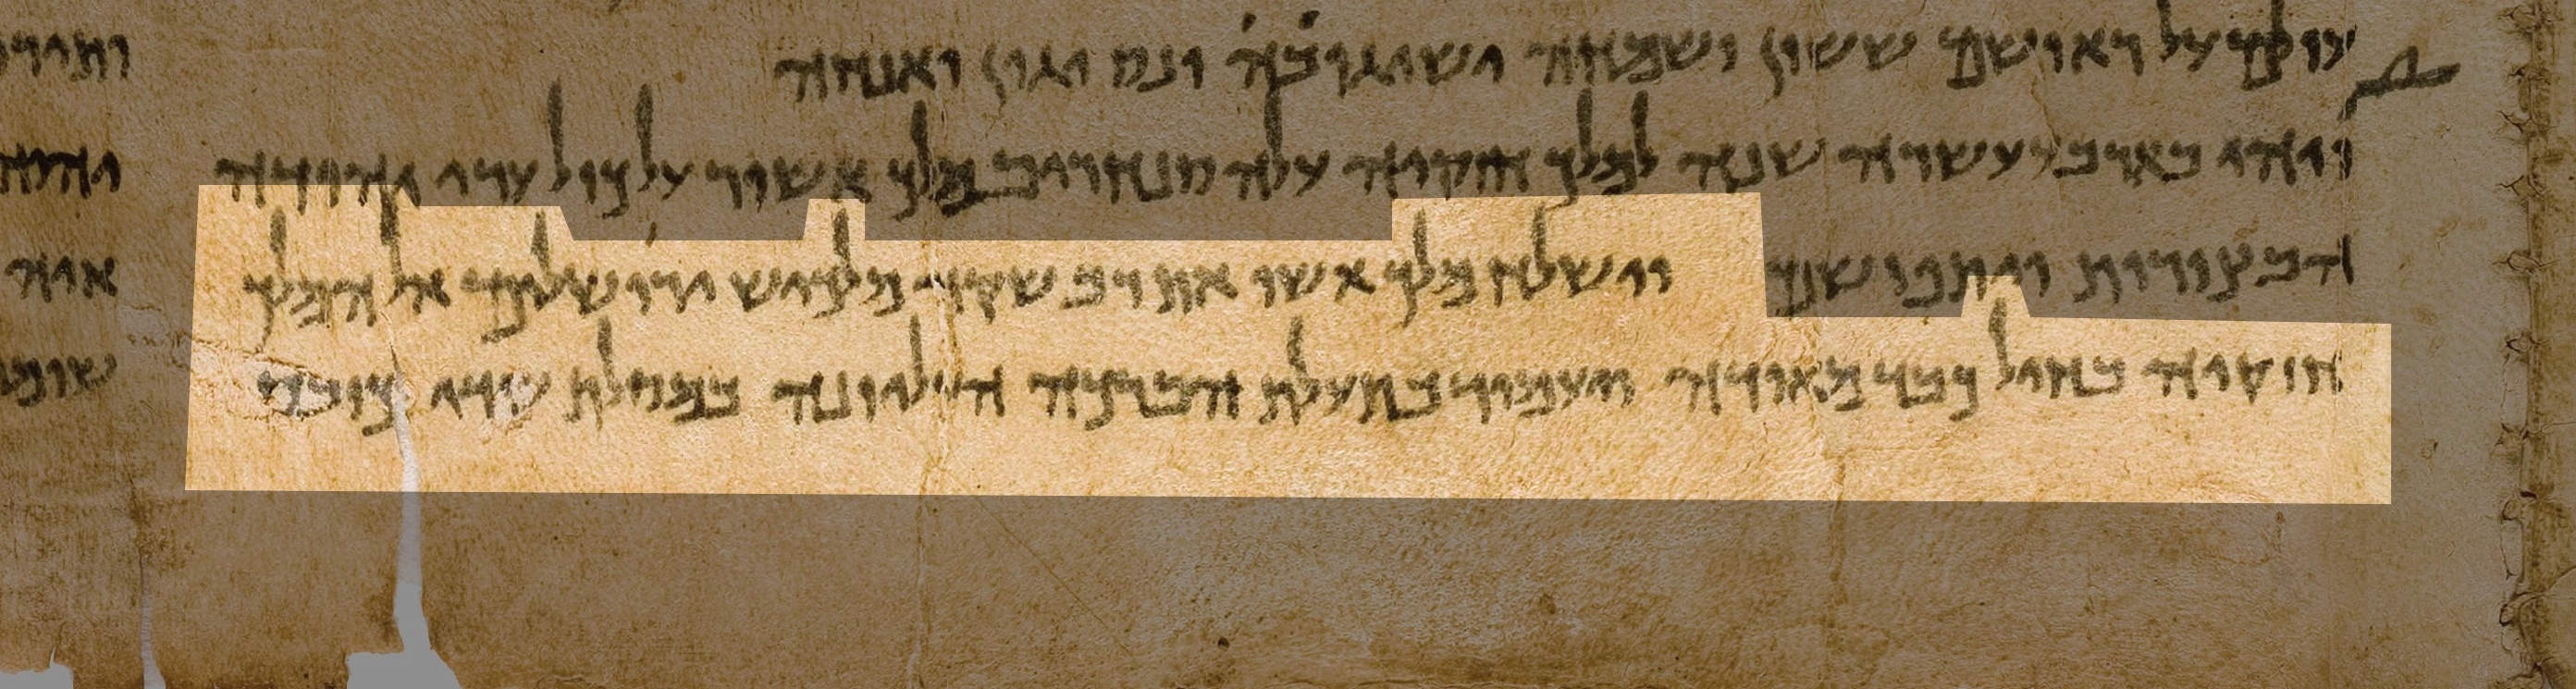 עולם על ראושם ששון ושמחה ישיגו בה ונס יגון ואנחה
ויהי בארבע עשרה שנה למלך חזקיה עלה סנחריב מלך אשור על כול ערי יהודה
הבצורות ויתפושם וישלח מלך אשור את רב שקה מלכיש ירושלימה אל המלך
חוזקיה בחיל כבד מאודה ויעמוד בתעלת הברכה העליונה במסלת שדי כובס